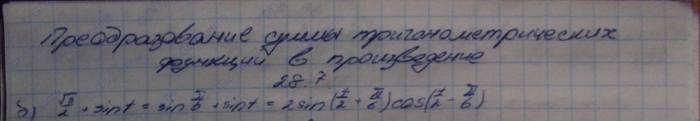 Преобразование суммы тригонометрических
функций в произведение
28.7
б) √3/2 + sin t = sin π/6 + sin t = 2sin(t/2 + π/6)cos(t/2 - π/6)